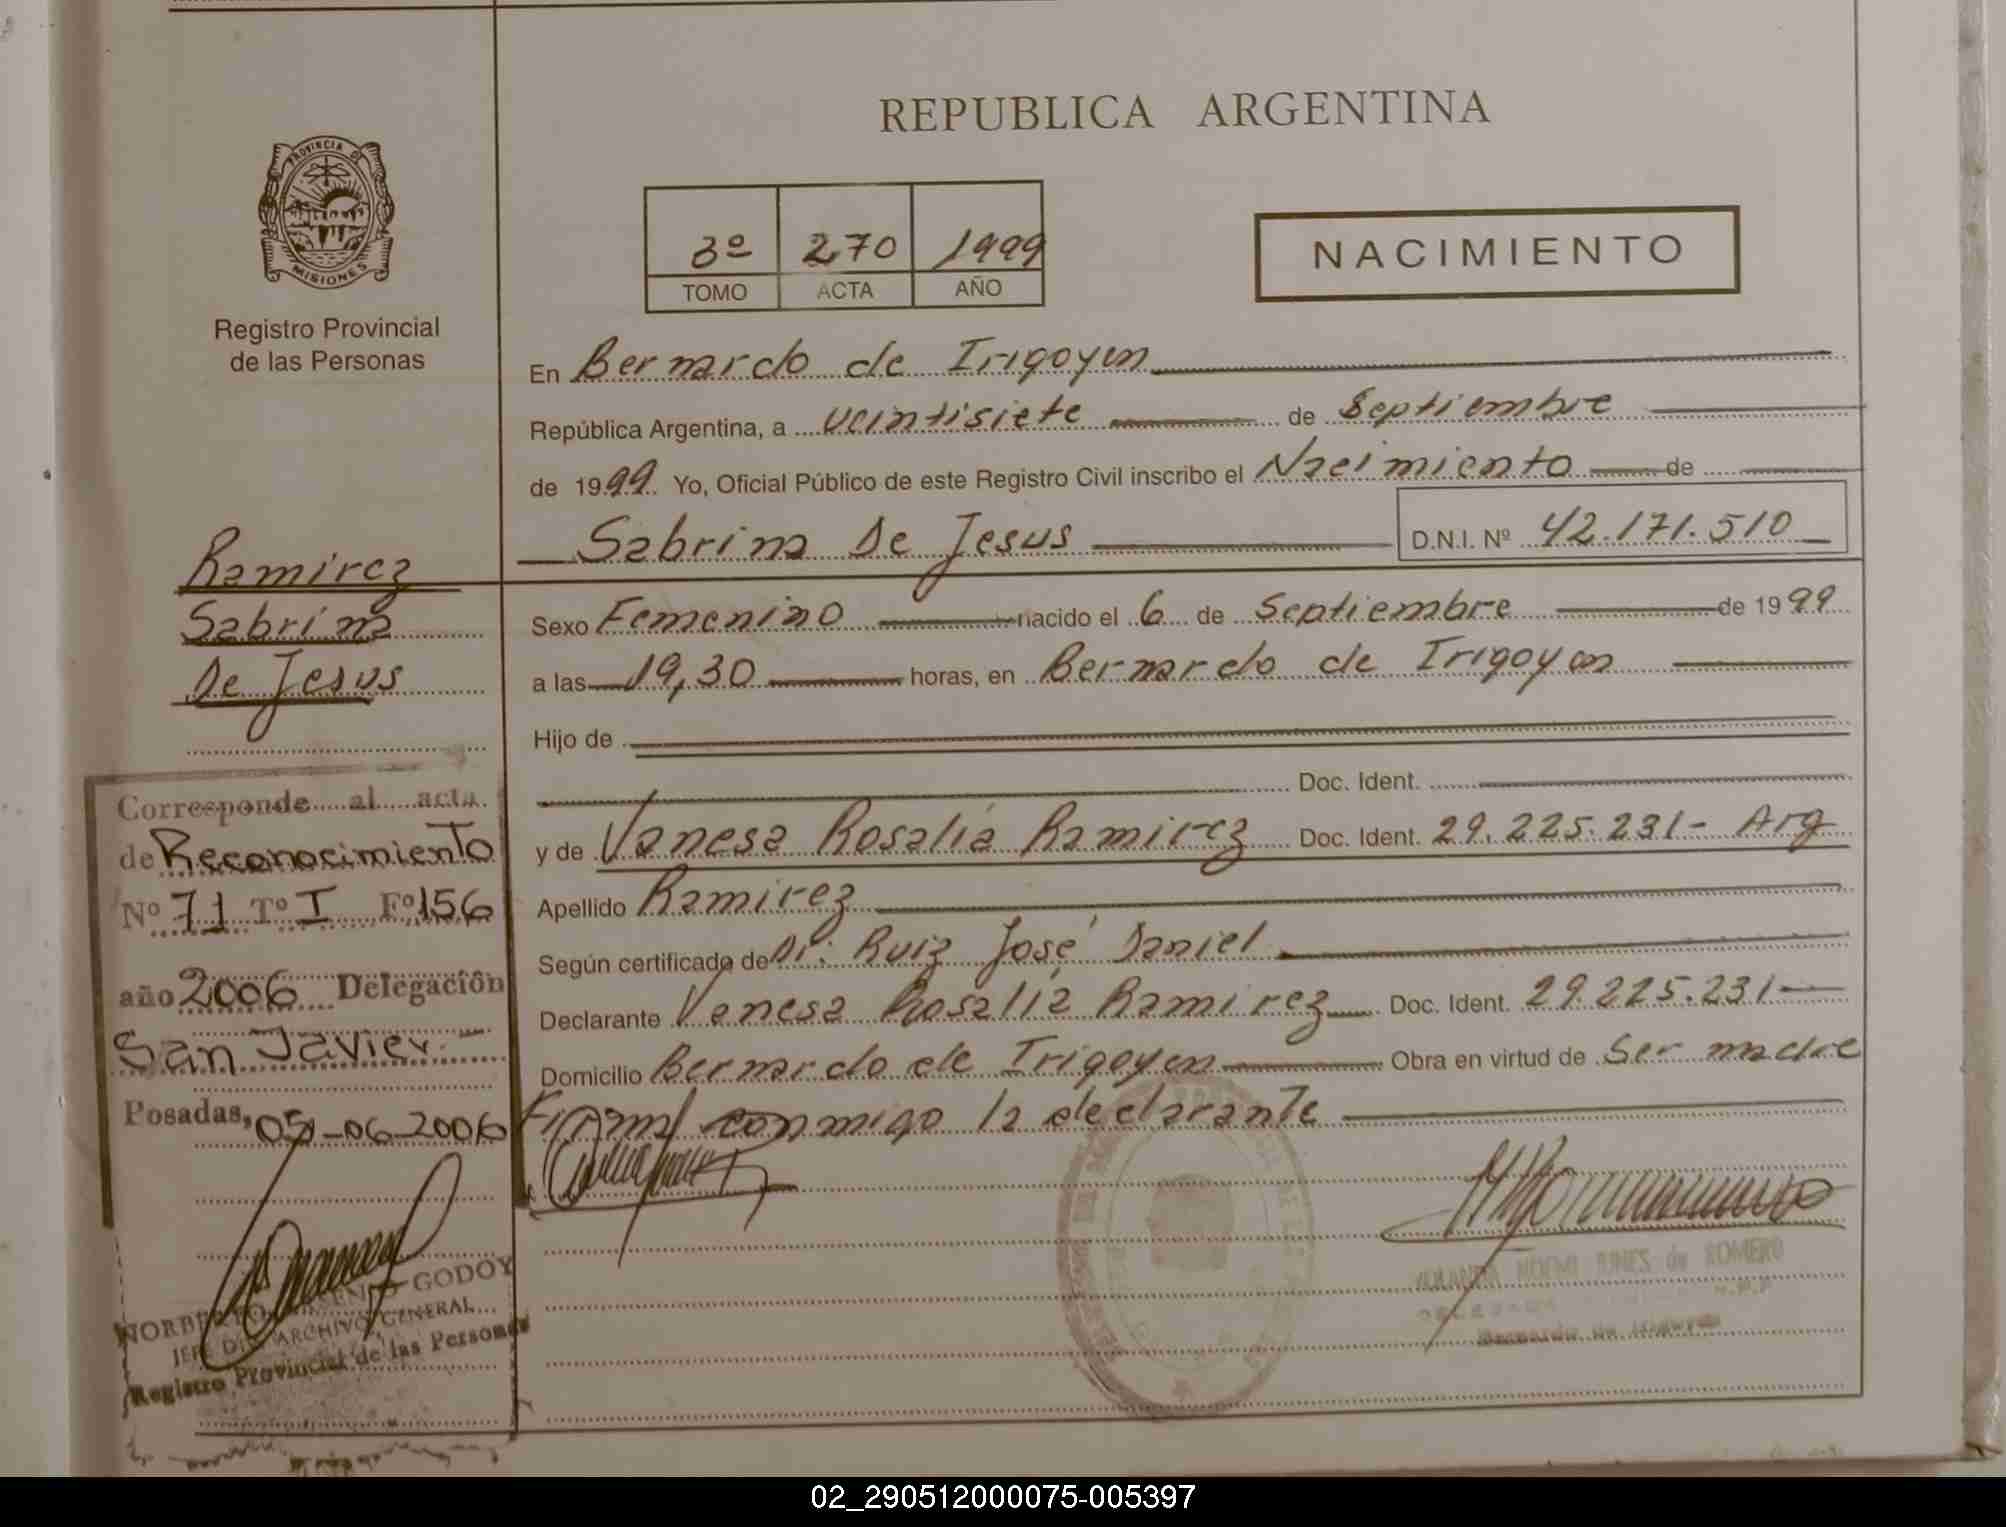 REPUBLICA ARGENTINA
PROVINCIA DE
MISIONES
Registro Provincial
de las Personas
3º 270 1999
TOMO ACTA AÑO
NACIMIENTO
En Bernardo de Irigoyen
República Argentina, a veintisiete de Septiembre
de 1999. Yo, Oficial Público de este Registro Civil inscribo el Nacimiento de
Sabrina De Jesus D.N.I. Nº 42.171.510
Ramirez
Sabrina
De Jesus
Sexo Femenino nacido el 6 de Septiembre de 1999
a las 19,30 horas, en Bernardo de Irigoyen
Hijo de
Doc. Ident.
y de Vanesa Rosalía Ramirez Doc. Ident. 29.225.231- Arg
Apellido Ramirez
Según certificado de Dr. Ruiz José Daniel
Declarante Vanesa Rosalía Ramirez Doc. Ident. 29.225.231
Domicilio Bernardo de Irigoyen Obra en virtud de Ser madre
Firma conmigo la declarante
Corresponde al acta
de Reconocimiento
Nº 71 Tº I Fº 156
año 2006 Delegación
San Javier.-
Posadas, 05-06-2006
GODOY
ARCHIVO GENERAL
Registro Provincial de las Personas
NOEMI de ROMERO
Bernardo de Irigoyen
02_290512000075-005397